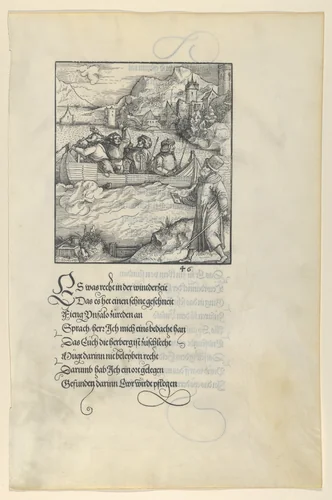 46
ES was recht in der winnderzeit
Das es het einen schne geschneit
Fieng Unfalo zureden an
Sprach herr Ich mich eins bedacht han
Das Euch die herberg ist zuschlecht
Mugt darinn nit beleyben recht
Darumb hab Ich ein ort gelegen
Gefunden darinn Ewr würde pflegen